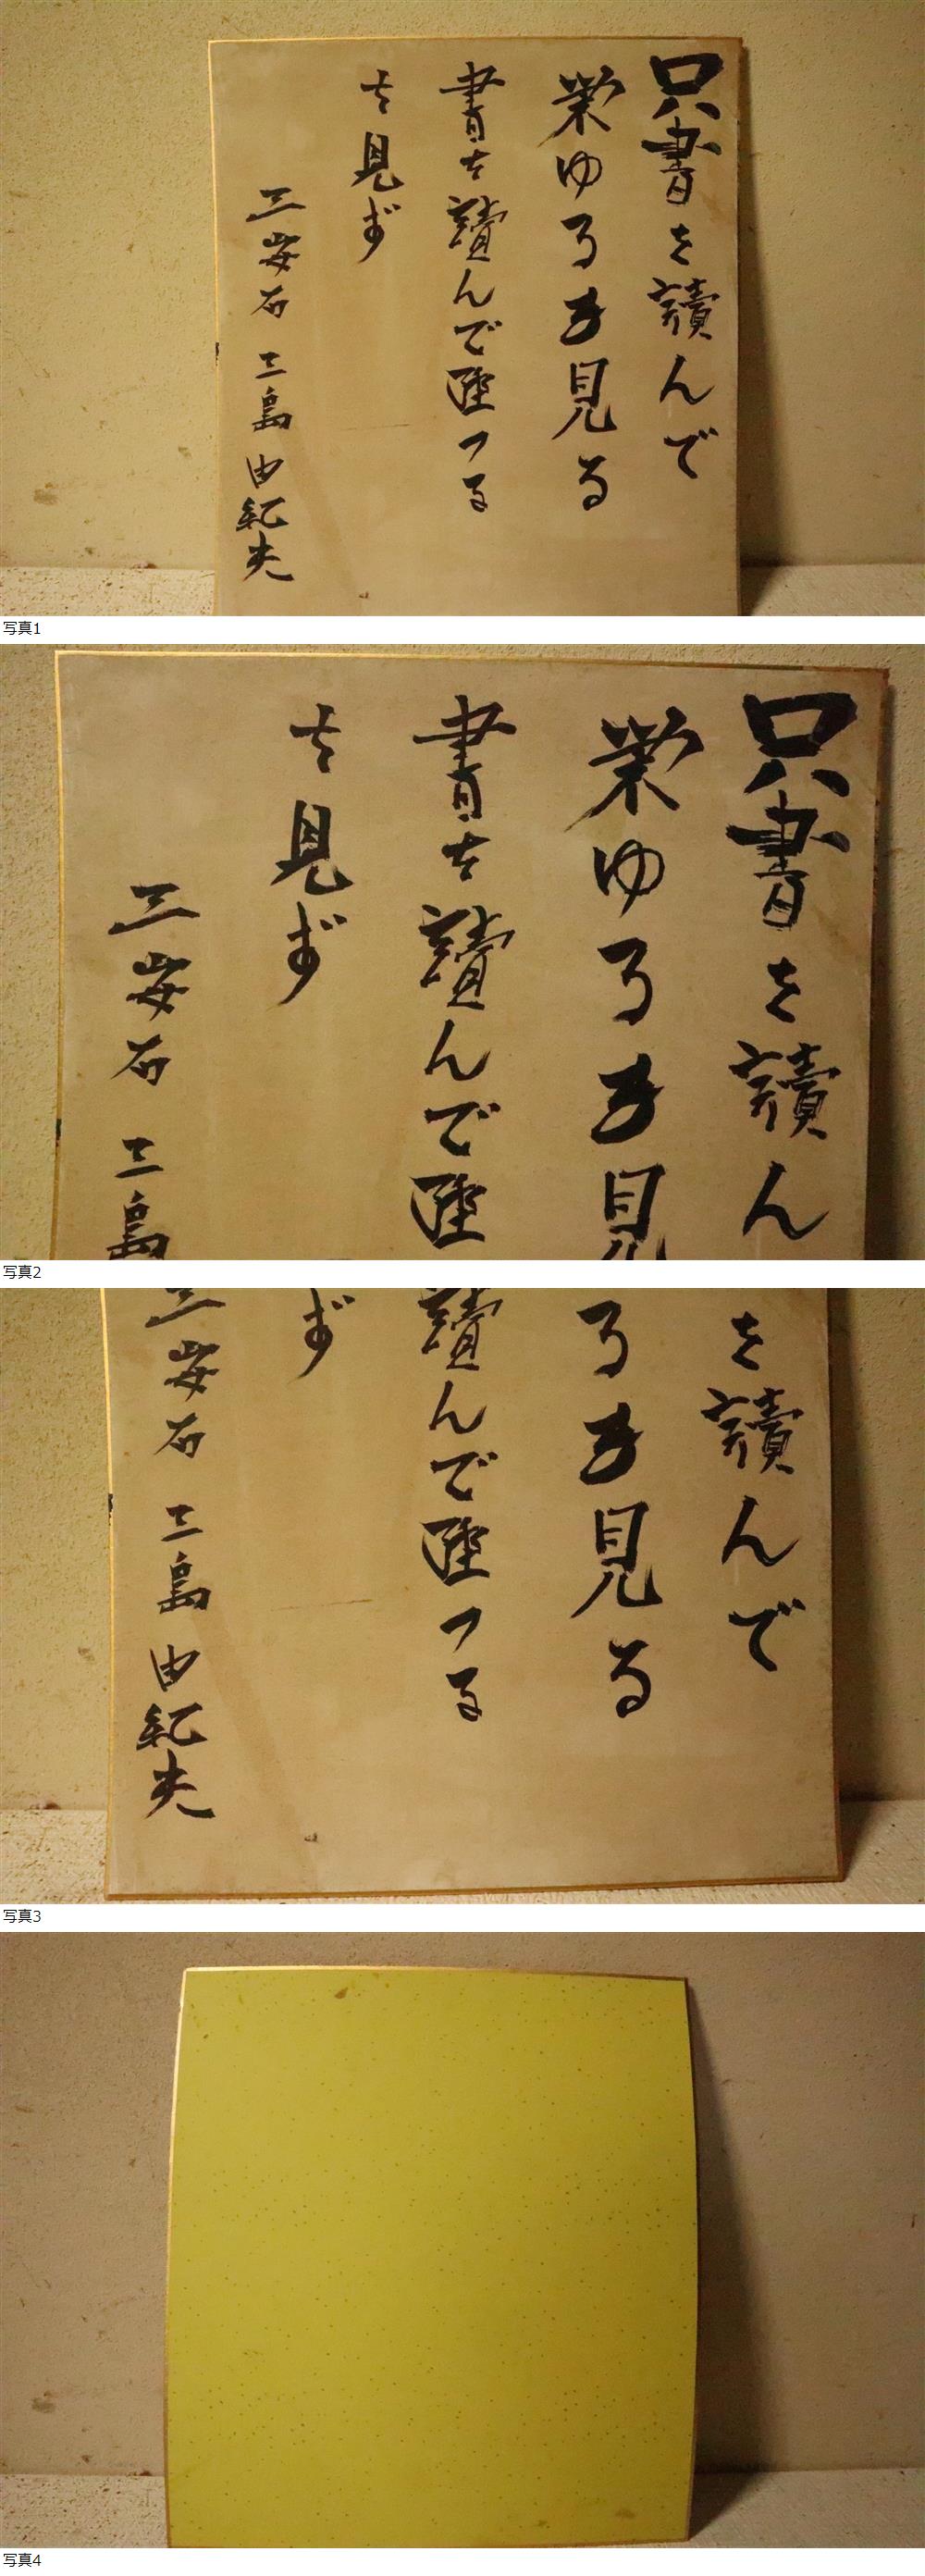 只書を讀んで
榮ゆるを見る
書を讀んで墜つる
を見ず
王安石 三島由紀夫
写真1
只書を讀ん
榮ゆるを見
書を讀んで墜
を見ず
王安石 三島
写真2
を讀んで
るを見る
讀んで墜つる
ず
王安石 三島由紀夫
写真3
写真4